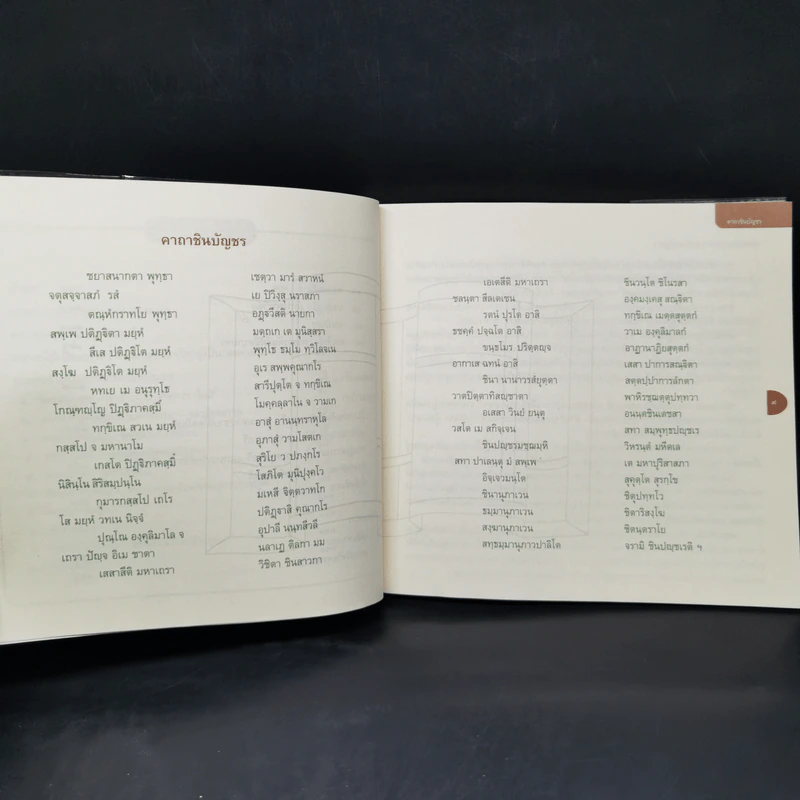 คาถาชินบัญชร
ชยาสนากตา พุทฺธา เชตฺวา มารํ สวาหนํ
จตุสจฺจาสภํ รสํ เย ปิวึสุ นราสภา
ตณฺหํกราทโย พุทฺธา อฏฺฐวีสติ นายกา
สพฺเพ ปติฏฺฐิตา มยฺหํ มตฺถเก เต มุนิสฺสรา
สีเส ปติฏฺฐิโต มยฺหํ พุทฺโธ ธมฺโม ทฺวิโลจเน
สงฺโฆ ปติฏฺฐิโต มยฺหํ อุเร สพฺพคุณากโร
หทเย เม อนุรุทฺโธ สารีปุตฺโต จ ทกฺขิเณ
โกณฺฑญฺโญ ปิฏฺฐิภาคสฺมึ โมคฺคลฺลาโน จ วามเก
ทกฺขิเณ สวเน มยฺหํ อาสุํ อานนฺทราหุโล
กสฺสโป จ มหานาโม อุภาสุํ วามโสตเก
เกสโต ปิฏฺฐิภาคสฺมึ สุริโย ว ปภงฺกโร
นิสินฺโน สิริสมฺปนฺโน โสภิโต มุนิปุงฺคโว
กุมารกสฺสโป เถโร มเหสี จิตฺตวาทโก
โส มยฺหํ วทเน นิจฺจํ ปติฏฺฐาสิ คุณากโร
ปุณฺโณ องฺคุลิมาโล จ อุปาลี นนฺทสีวลี
เถรา ปัญฺจ อิเม ชาตา นลาเฏ ติลกา มม
เสสาสีติ มหาเถรา วิชิตา ชินสาวกา
คาถาชินบัญชร
เอเตสีติ มหาเถรา ชินวนฺโต ชิโนรสา
ชลนฺตา สีลเตเชน องฺคมงฺเคสุ สณฺฐิตา
รตนํ ปุรโต อาสิ ทกฺขิเณ เมตฺตสุตฺตกํ
ธชคฺคํ ปจฺฉโต อาสิ วาเม องฺคุลิมาลกํ
ขนฺธโมร ปริตฺตญฺจ อาฏานาฏิยสุตฺตกํ
อากาเส ฉทนํ อาสิ เสสา ปาการสณฺฐิตา
ชินา นานาวรสํยุตฺตา สตฺตปฺปาการลังกตา
วาตปิตฺตาทิสญฺชาตา พาหิรชฺฌตฺตุปทฺทวา
อเสสา วินยํ ยนฺตุ อนนฺตชินเตชสา
วสโต เม สกิจฺเจน สทา สมฺพุทฺธปญฺชเร
ชินปญฺชรมชฺฌมฺหิ วิหรนฺตํ มหีตเล
สทา ปาเลนฺตุ มํ สพฺเพ เต มหาปุริสาสภา
อิจฺเจวมนฺโต สุคุตฺโต สุรกฺโข
ชินานุภาเวน ชิตุปทฺทโว
ธมฺมานุภาเวน ชิตาริสงฺโฆ
สงฺฆานุภาเวน ชิตนฺตราโย
สทฺธมฺมานุภาวปาลิโต จรามิ ชินปญฺชเรติ ฯ